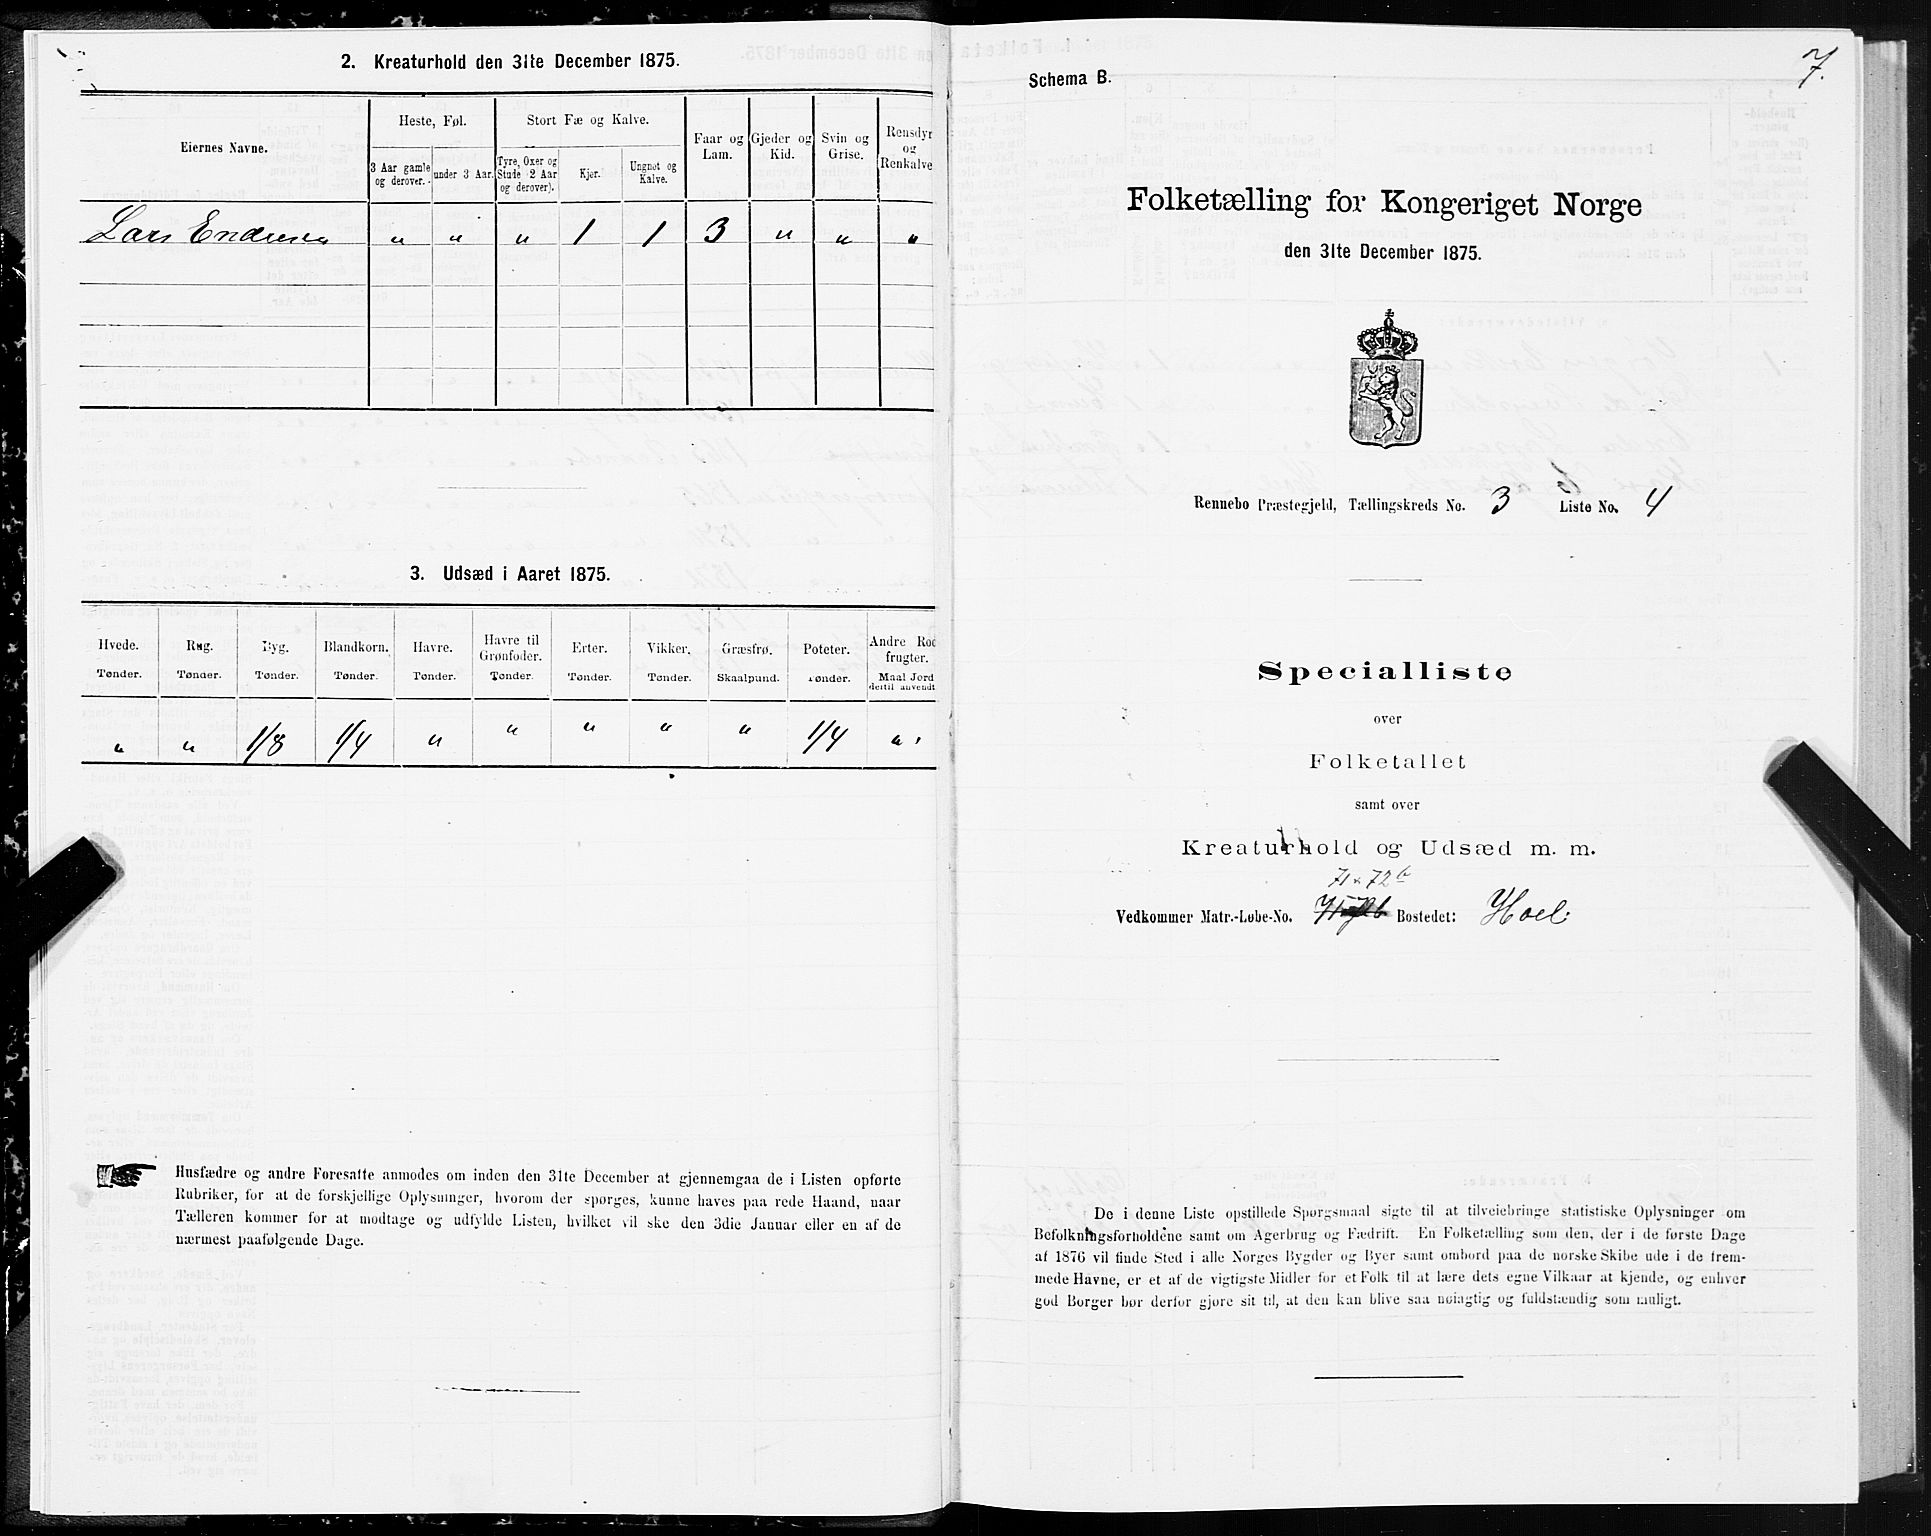 2. Kreaturhold den 31te December 1875.
Eiernes Navne.
Heste, Føl.
Stort Fæ og Kalve.
Faar og Lam.
Gjeder og Kid.
Svin og Grise.
Rensdyr og Renkalve
3 Aar gamle og derover.
under 3 Aar.
Tyre, Oxer og Stude (2 Aar og derover).
Kjer.
Ungnøt og Kalve.
Lars Endresen " " " 1 1 3 " " "
3. Udsæd i Aaret 1875.
Hvede. Rug. Byg. Blandkorn. Havre. Havre til Grønfoder. Erter. Vikker. Græsfrø. Poteter. Andre Rod frugter.
Tønder. Tønder. Tønder. Tønder. Tønder. Tønder. Tønder. Tønder. Skaalpund. Tønder. Maal Jord dertil anvendt
" " 1/8 1/4 " " " " " 1/4 "
Husfædre og andre Foresatte anmodes om inden den 31te December at gjennemgaa de i Listen opførte
Rubriker, for at de forskjellige Oplysninger, hvorom der spørges, kunne haves paa rede Haand, naar
Tælleren kommer for at modtage og udfylde Listen, hvilket vil ske den 3die Januar eller en af de
nærmest paafølgende Dage.
7.
Schema B.
Folketælling for Kongeriget Norge
den 31te December 1875.
Rennebo Præstegjeld, Tællingskreds No. 3 Liste No. 4
Specialliste
over
Folketallet
samt over
Kreaturhold og Udsæd m. m.
71 & 72b
Vedkommer Matr.-Løbe-No. Bostedet: Hoel
De i denne Liste opstillede Spørgsmaal sigte til at tilveiebringe statistiske Oplysninger om
Befolkningsforholdene samt om Agerbrug og Fædrift. En Folketælling som den, der i de første Dage
af 1876 vil finde Sted i alle Norges Bygder og Byer samt ombord paa de norske Skibe ude i de frem-
mede Havne, er et af de vigtigste Midler for et Folk til at lære dets egne Vilkaar at kjende, og enhver
god Borger bør derfor gjøre sit til, at den kan blive saa nøiagtig og fuldstændig som muligt.